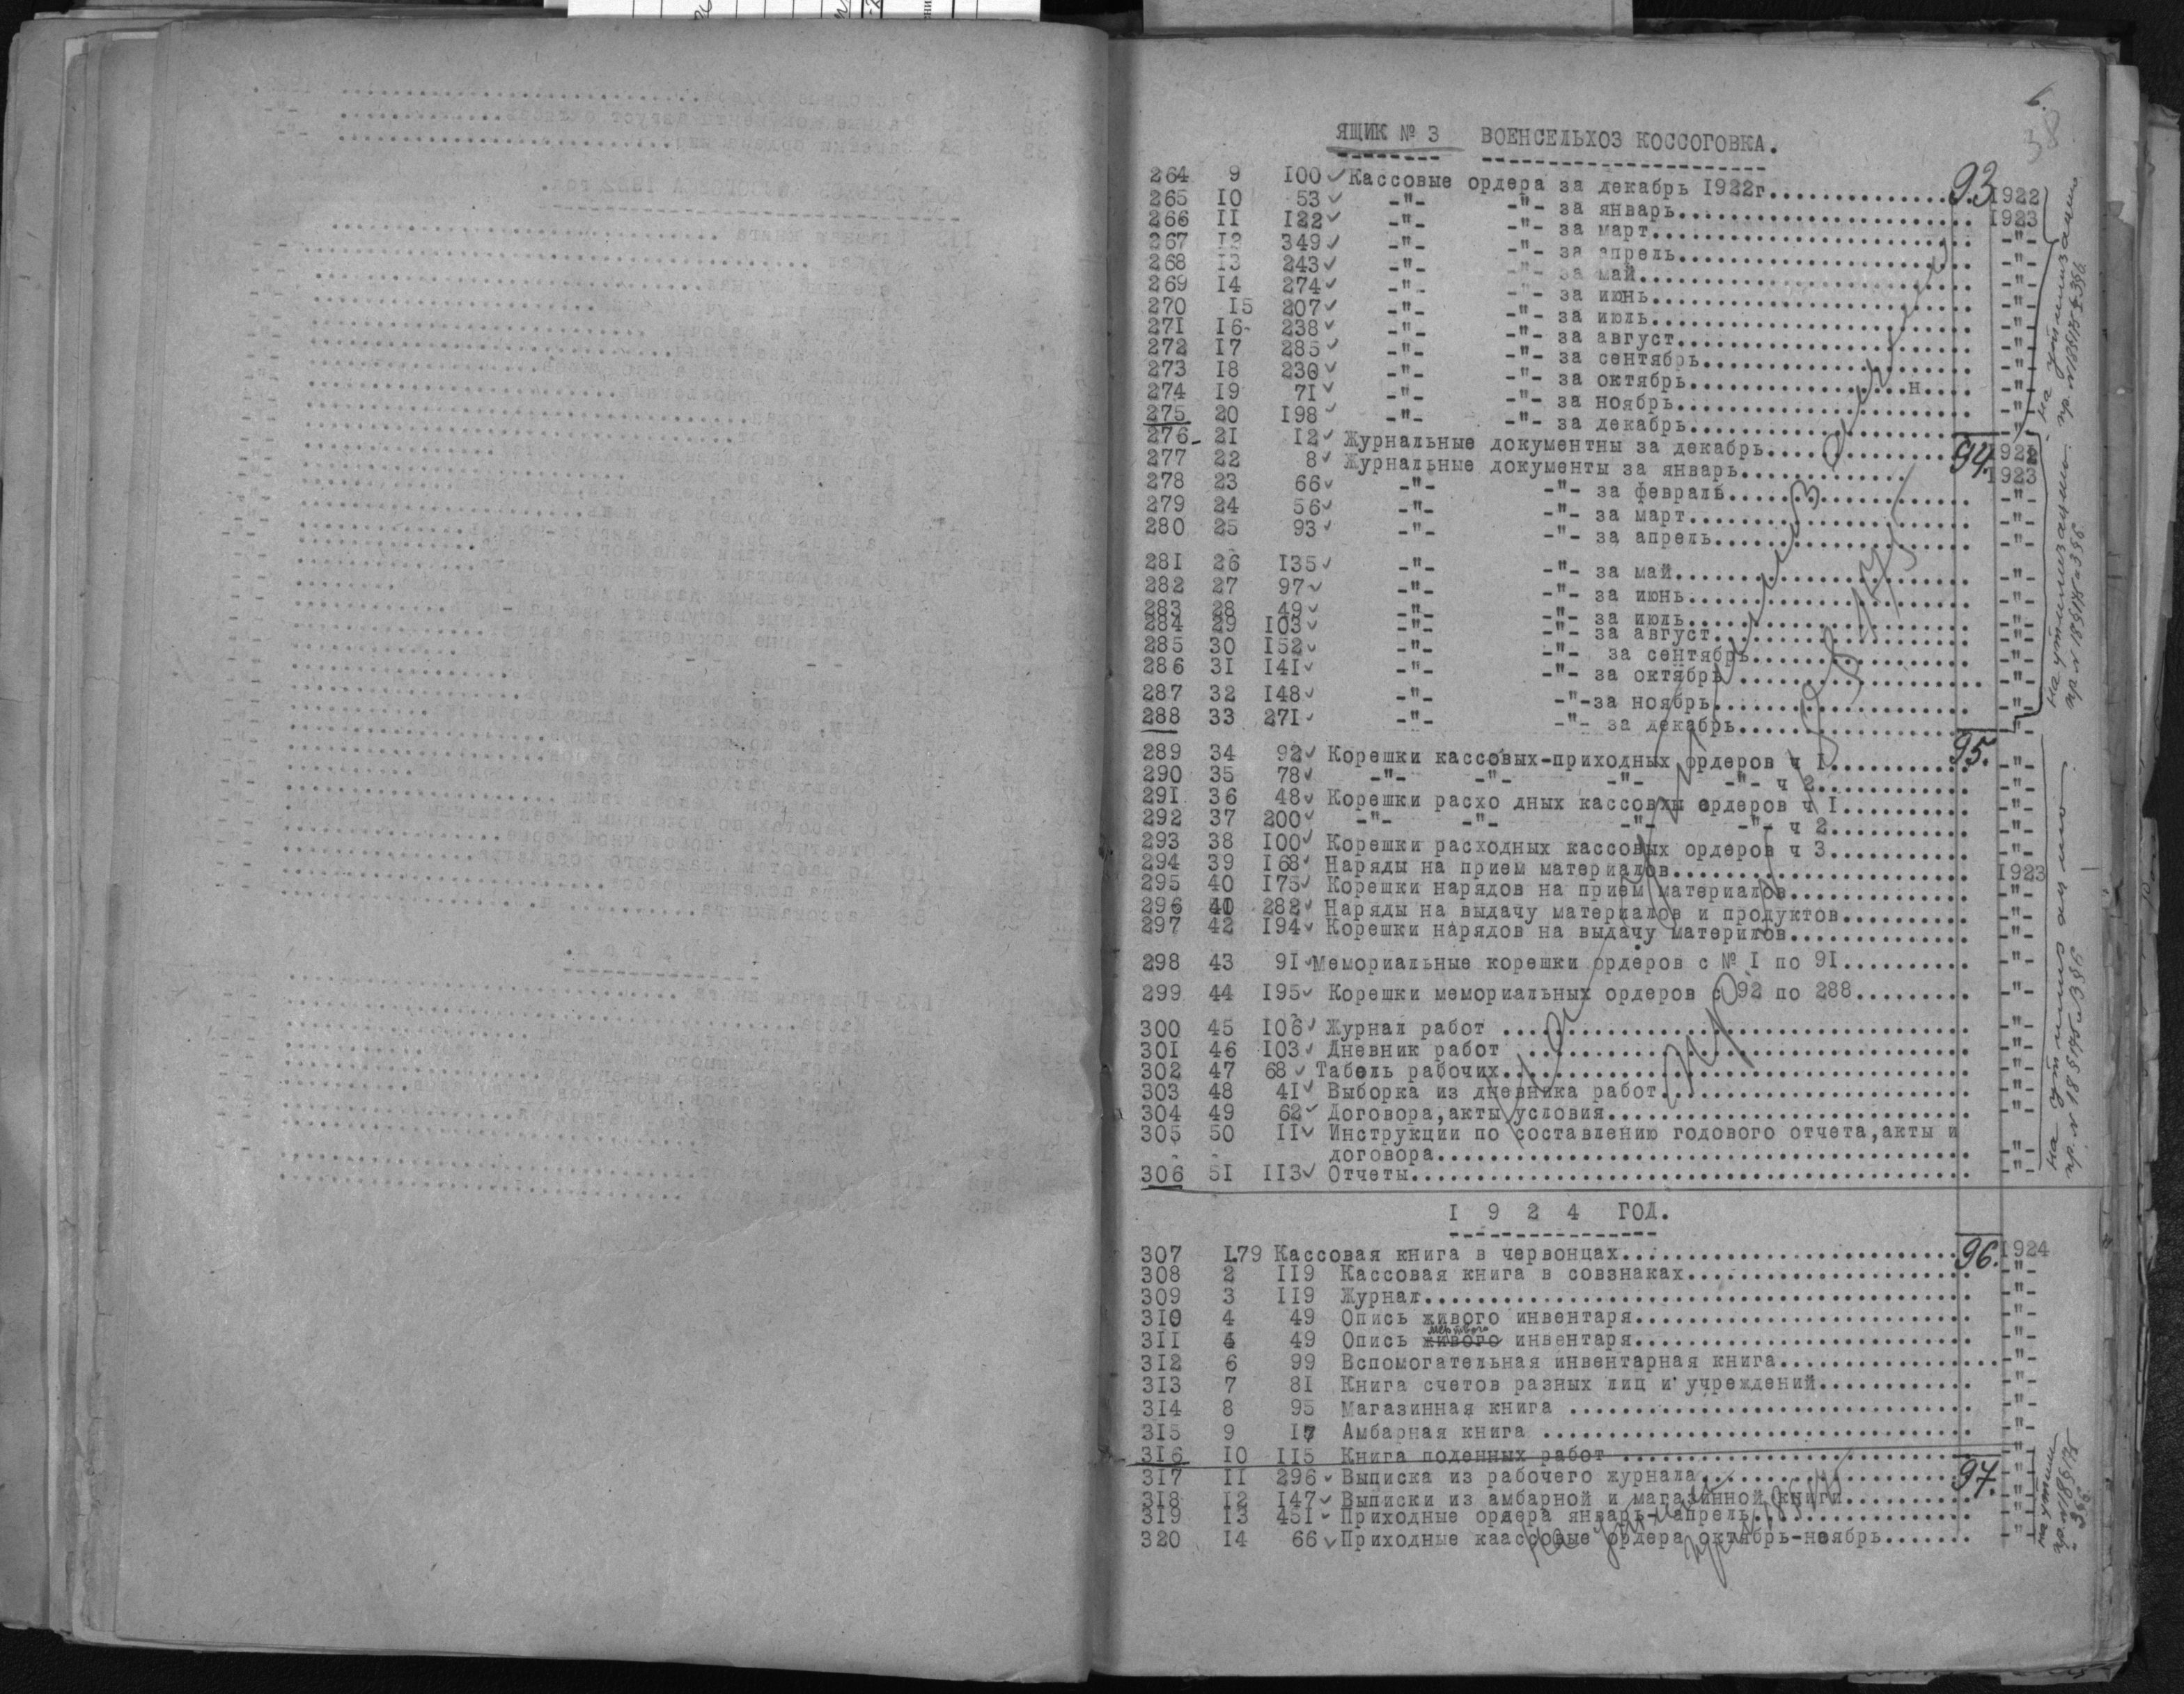 38
ЯЩИК № 3 ВОЕНСЕЛЬХОЗ КОССОГОВКА.
264 9 100 Кассовые ордера за декабрь 1922г. 93. 1922
265 10 53 -"- -"- за январь. 1923
266 11 122 -"- -"- за март. -"-
267 12 349 -"- -"- за апрель. -"-
268 13 243 -"- -"- за май. -"-
269 14 274 -"- -"- за июнь. -"-
270 15 207 -"- -"- за июль. -"-
271 16 238 -"- -"- за август. -"-
272 17 285 -"- -"- за сентябрь. -"-
273 18 230 -"- -"- за октябрь. н -"-
274 19 71 -"- -"- за ноябрь. -"-
275 20 198 -"- -"- за декабрь. -"-
276 21 12 Журнальные документны за декабрь. 94. 1922
277 22 8 Журнальные документы за январь. 1923
278 23 66 -"- -"- за февраль. -"-
279 24 56 -"- -"- за март. -"-
280 25 93 -"- -"- за апрель. -"-
281 26 135 -"- -"- за май. -"-
282 27 97 -"- -"- за июнь. -"-
283 28 49 -"- -"- за июль. -"-
284 29 103 -"- -"- за август. -"-
285 30 152 -"- -"- за сентябрь. -"-
286 31 141 -"- -"- за октябрь. -"-
287 32 148 -"- -"-за ноябрь. -"-
288 33 271 -"- -"- за декабрь. -"-
289 34 92 Корешки кассовых-приходных ордеров ч 1. 95. -"-
290 35 78 -"- -"- -"- -"- ч 2. -"-
291 36 48 Корешки расхо дных кассовды ордеров ч 1. -"-
292 37 200 -"- -"- -"- -"- ч 2. -"-
293 38 100 Корешки расходных кассовых ордеров ч 3. -"-
294 39 168 Наряды на прием материалов. 1923
295 40 175 Корешки нарядов на прием материалов. -"-
296 40 282 Наряды на выдачу материалов и продуктов. -"-
297 42 194 Корешки нарядов на выдачу материлов. -"-
298 43 91 Мемориальные корешки ордеров с № 1 по 91. -"-
299 44 195 Корешки мемориальных ордеров с 92 по 288. -"-
300 45 106 Журнал работ -"-
301 46 103 Дневник работ -"-
302 47 68 Табель рабочих. -"-
303 48 41 Выборка из дневника работ. -"-
304 49 62 Договора,акты условия. -"-
305 50 11 Инструкции по составлению годового отчета,акты и
договора. -"-
306 51 113 Отчеты. -"-
1 9 2 4 ГОД.
307 1.79 Кассовая книга в червонцах. 96. 1924
308 2 119 Кассовая книга в совзнаках. -"-
309 3 119 Журнал. -"-
310 4 49 Опись живого инвентаря. -"-
мертвого
311 4 49 Опись живого инвентаря. -"-
312 6 99 Вспомогательная инвентарная книга. -"-
313 7 81 Книга счетов разных лиц и учреждений. -"-
314 8 95 Магазинная книга -"-
315 9 17 Амбарная книга -"-
316 10 115 Книга поденных работ -"-
317 11 296 Выписка из рабочего журнала. 97. -"-
318 12 147 Выписки из амбарной и магазинной книги. -"-
319 13 451 Приходные ордера январь- апрель. -"-
320 14 66 Приходные каассовые ордера октябрь-ноябрь. -"-
на утилизацию
на утилизацию
на утилизацию